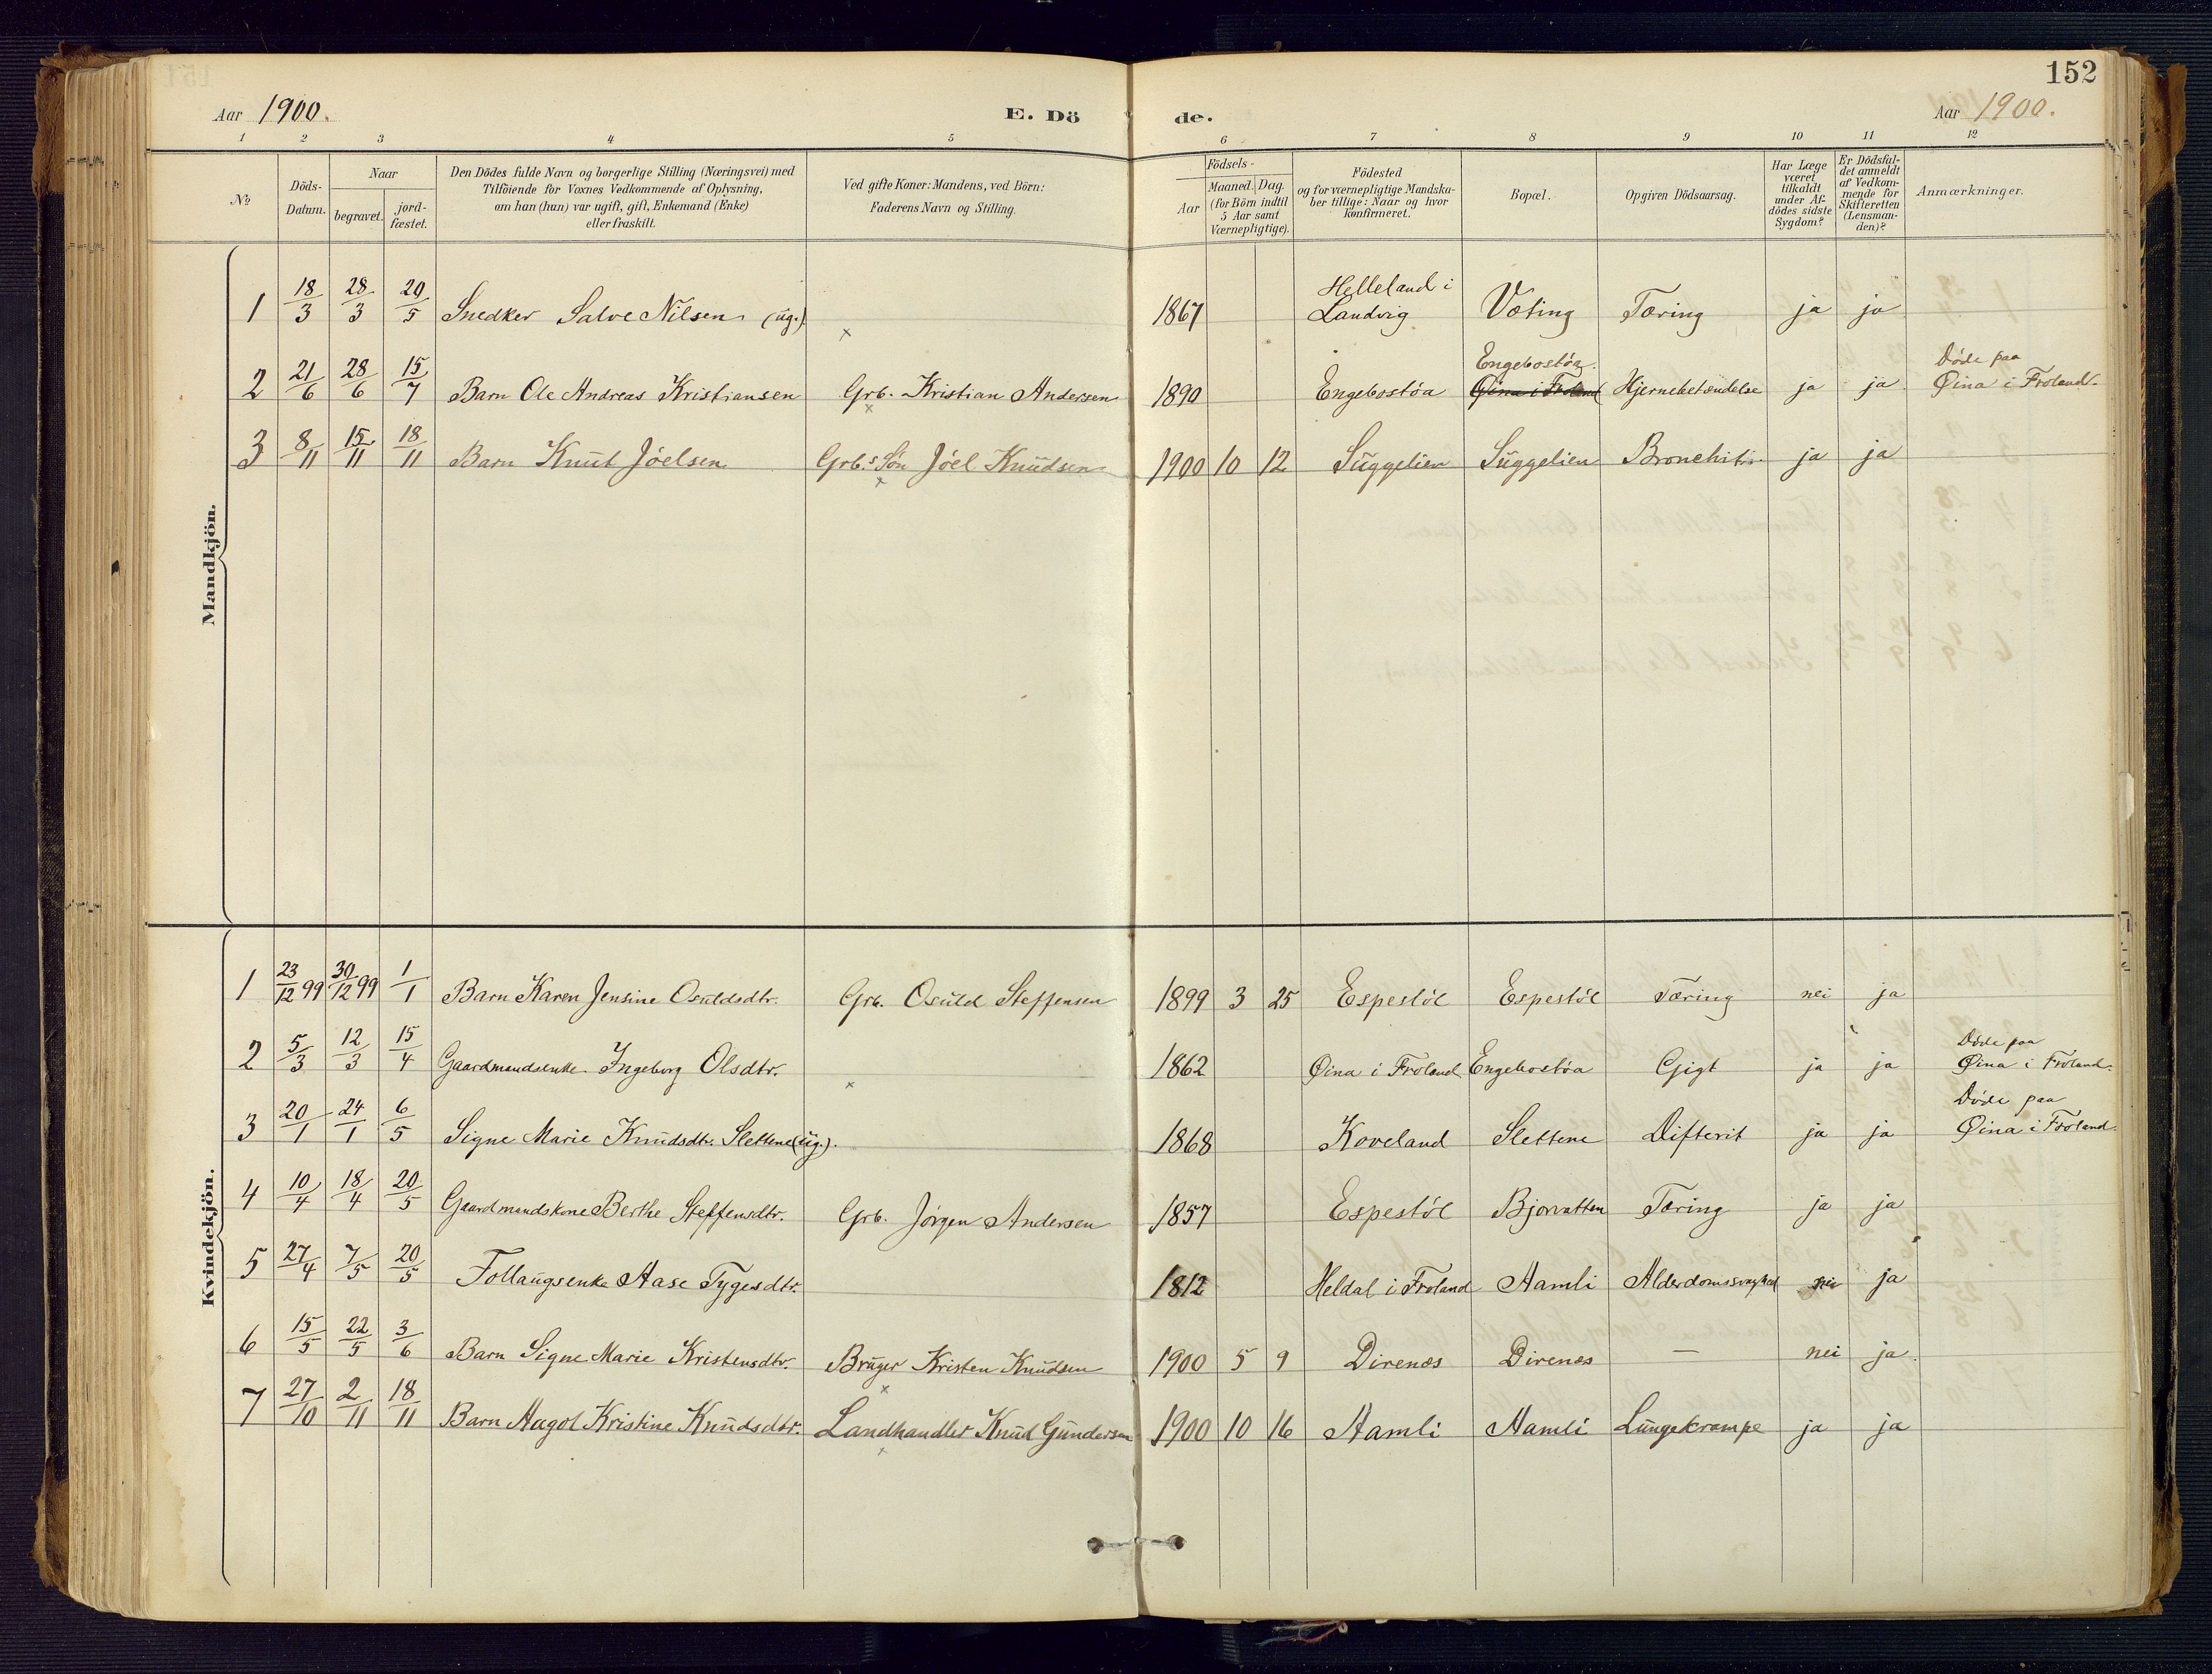 152
Aar 1900. E. Dö de. Aar 1900.
1 2 3 4 5 6 7 8 9 10 11 12
№
Döds-Datum.
Naar
begravet.
jord-fæstet.
Den Dödes fulde Navn og borgerlige Stilling (Næringsvei) med
Tilföiende for Voxnes Vedkommende af Oplysning,
om han (hun) var ugift, gift, Enkemand (Enke)
eller fraskilt.
Ved gifte Koner: Mandens, ved Börn:
Faderens Navn og Stilling.
Födsels-
Aar
Maaned. Dag.
(for Börn indtil
5 Aar samt
Værnepligtige).
Födested
og for værnepligtige Mandska-
ber tillige: Naar og hvor
konfirmeret.
Bopæl.
Opgiven Dödsaarsag.
Har Læge
været
tilkaldt
under Af-
dödes sidste
Sygdom?
Er Dödsfal-
det anmeldt
af Vedkom-
mende for
Skifteretten
(Lensman-
den)?
Anmærkninger.
Mandkjön.
1 18/3 28/3 20/5 Snedker Salve Nilsen (ug.) × 1867 Helleland i Landvig Væting Tæring ja ja
2 21/6 28/6 15/7 Barn Ole Andreas Kristiansen Grb. Kristian Andersen × 1890 Engebostöa Engebostöa Øina i Froland Hjernebetændelse ja ja Döde paa Øina i Froland.
3 8/11 15/11 18/11 Barn Knut Jöelsen Grb.s Sön Jöel Knudsen × 1900 10 12 Suggelien Suggelien Bronchitis ja ja
Kvindekjön.
1 23/12 99 30/12 99 1/1 Barn Karen Jensine Osuldsdtr. Grb. Osuld Steffensen 1899 3 25 Espestöl Espestöl Tæring nei ja
2 5/3 12/3 15/4 Gaardmandsenke Ingeborg Olsdtr. × 1862 Øina i Froland Engebostöa Gigt ja ja Döde paa Øina i Froland.
3 20/1 24/1 6/5 Signe Marie Knudsdtr. Slettene (ug.). 1868 Koveland Slettene Difterit ja ja Döde paa Øina i Froland.
4 10/4 18/4 20/5 Gaardmandskone Berthe Steffensdtr. Grb. Jörgen Andersen 1857 Espestöl Bjorvatten Tæring ja ja
5 27/4 7/5 20/5 Follaugsenke Aase Tygesdtr. 1812 Heldal i Froland Aamli Alderdomssvaghed nei ja
6 15/5 22/5 3/6 Barn Signe Marie Kristensdtr. Bruger Kristen Knudsen × 1900 5 9 Direnæs Direnæs — nei ja.
7 27/10 2/11 18/11 Barn Aagot Kristine Knudsdtr. Landhandler Knud Gundersen × 1900 10 16 Aamli Aamli Lungekrampe ja ja